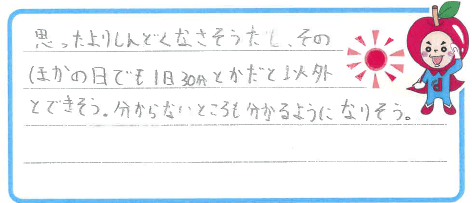 思ったよりしんどくなさそうだし、その
ほかの日でも1日30分とかだと以外
とできそう。分からないところも分かるようになりそう。